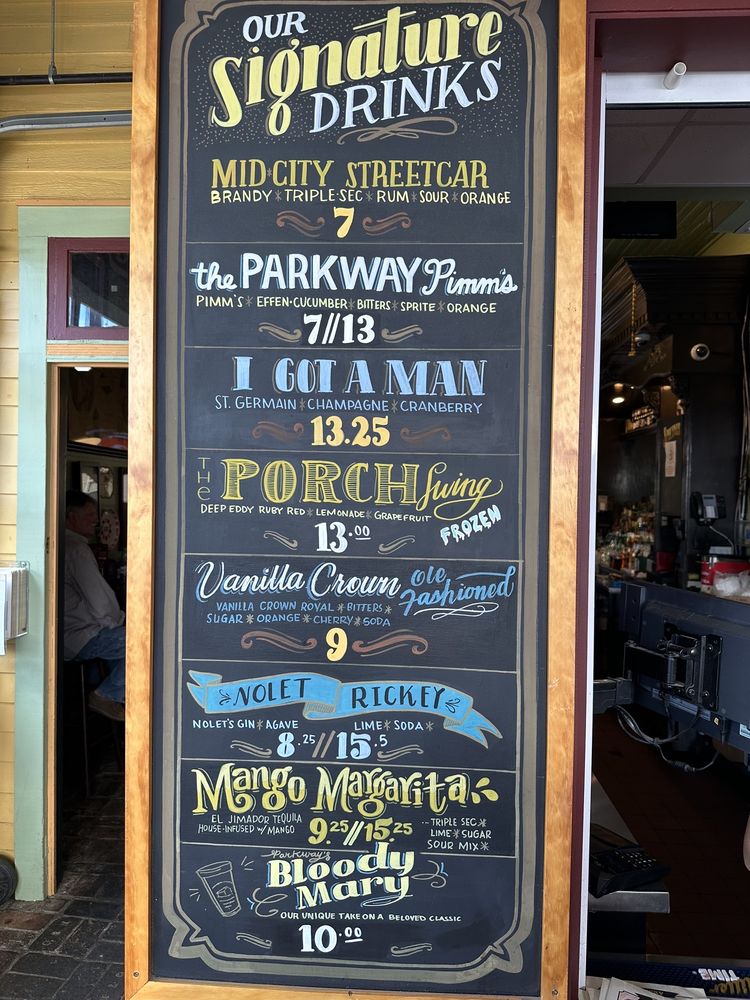 OUR
Signature
DRINKS
MID-CITY STREETCAR
BRANDY * TRIPLE-SEC * RUM * SOUR * ORANGE
7
the PARKWAY Pimm's
PIMM'S * EFFEN-CUCUMBER * BITTERS * SPRITE * ORANGE
7//13
I GOT A MAN
ST. GERMAIN * CHAMPAGNE * CRANBERRY
13.25
THE PORCH Swing
DEEP EDDY RUBY RED * LEMONADE * GRAPEFRUIT
13.00 FROZEN
Vanilla Crown Ole Fashioned
VANILLA CROWN ROYAL * BITTERS *
SUGAR * ORANGE * CHERRY * SODA
9
NOLET RICKEY
NOLET'S GIN * AGAVE LIME * SODA *
8.25//15.5
Mango Margarita
EL JIMADOR TEQUILA
HOUSE-INFUSED W/MANGO
9.25//15.25
TRIPLE SEC *
LIME * SUGAR
SOUR MIX *
Parkway's
Bloody
Mary
OUR UNIQUE TAKE ON A BELOVED CLASSIC
10.00